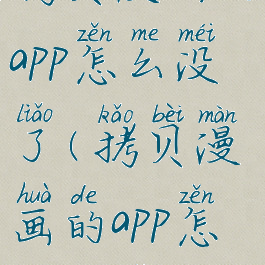 zěn me méi
app怎么没
liǎo kǎo bèi màn
了(拷贝漫
huà de zěn
画的app怎